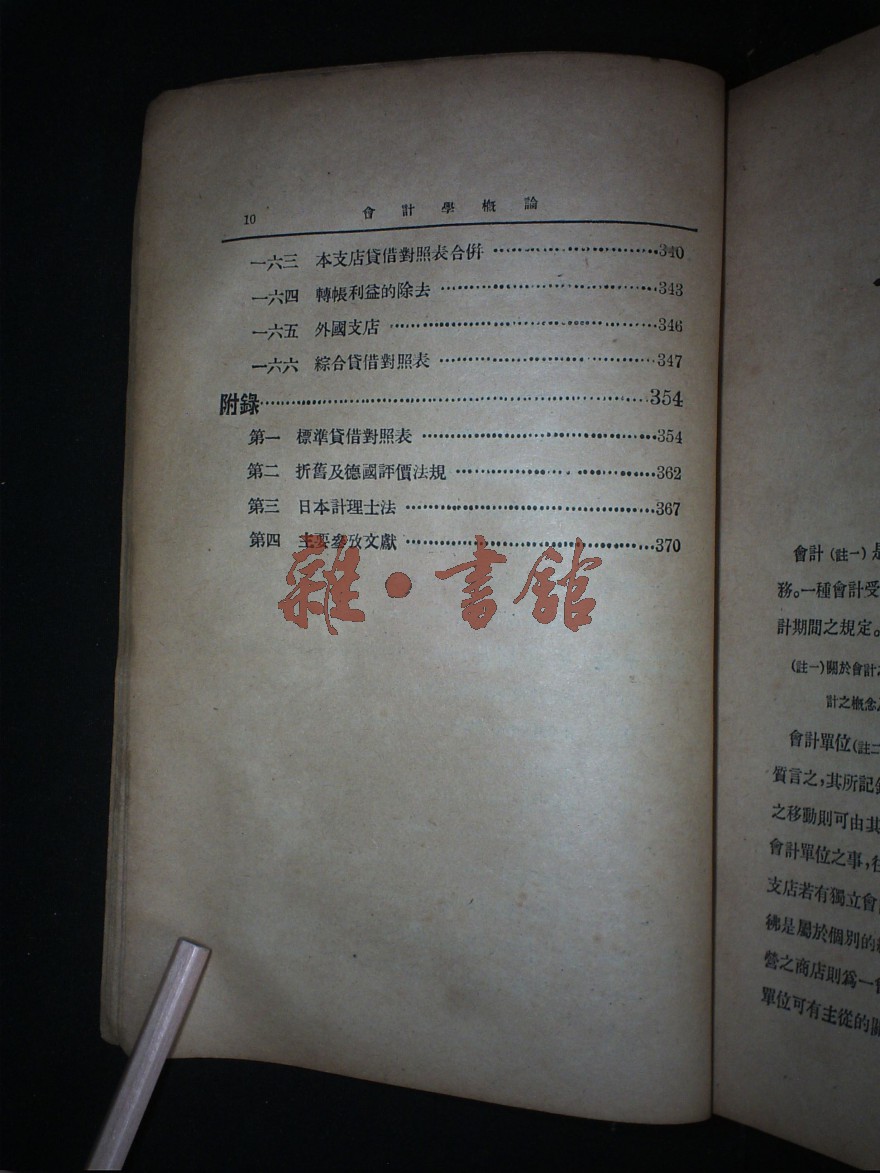 10 會計學概論
一六三 本支店貸借對照表合併……340
一六四 轉帳利益的除去……343
一六五 外國支店……346
一六六 綜合貸借對照表……347
附錄……354
第一 標準貸借對照表……354
第二 折舊及德國評價法規……362
第三 日本計理士法……367
第四 主要參攷文獻……370
雜·書館
會計(註一)是
務。一種會計受
計期間之規定。
(註一)關於會計
計之概念
會計單位(註二
質言之,其所記
之移動則可由其
會計單位之事,往
支店若有獨立會
彿是屬於個別的
營之商店則爲一會
單位可有主從的關